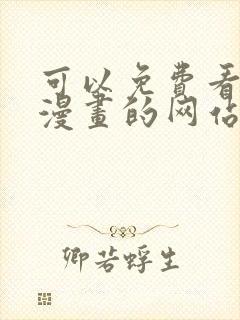 可以免费看
漫畫的网站
卿若蜉生